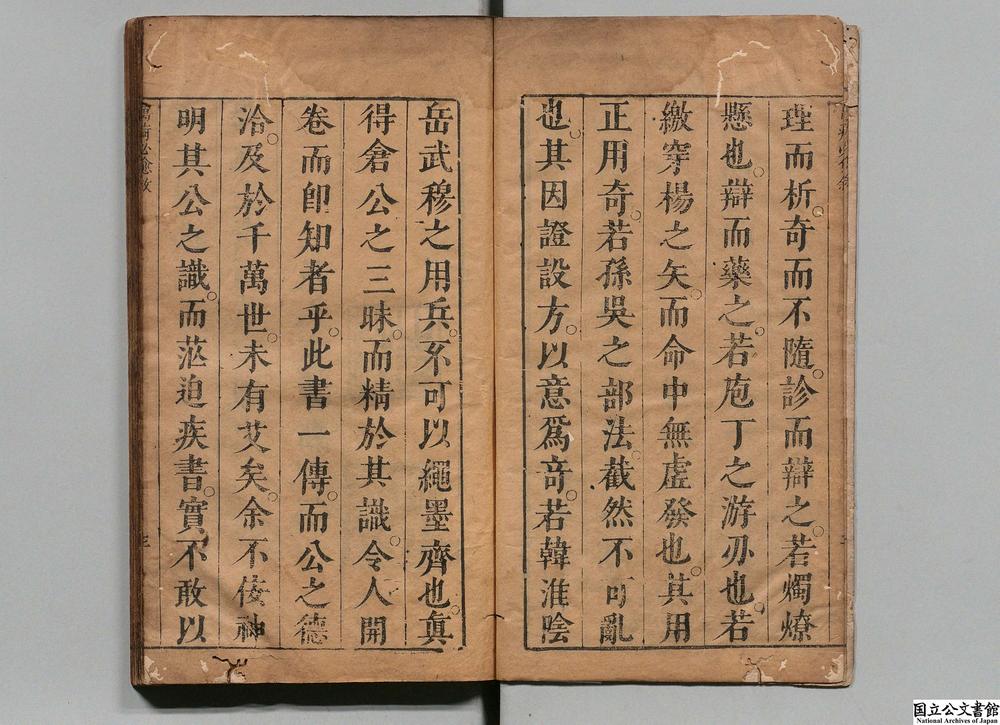 理而析奇而不隨。診而辯之。若燭燎
懸也。辯而藥之。若庖丁之游刃也。若
繳穿楊之矢。而命中無虛發也。其用
正用奇。若孫吳之部法。截然不可亂
也。其因證設方。以意爲奇。若韓淮陰
岳武穆之用兵。不可以繩墨齊也。眞
得倉公之三昧。而精於其識。令人開
卷而卽知者乎。此書一傳。而公之德
洽。及於千萬世。未有艾矣。余不佞神
明其公之識。而茫迫疾書。實不敢以
国立公文書館
National Archives of Japan